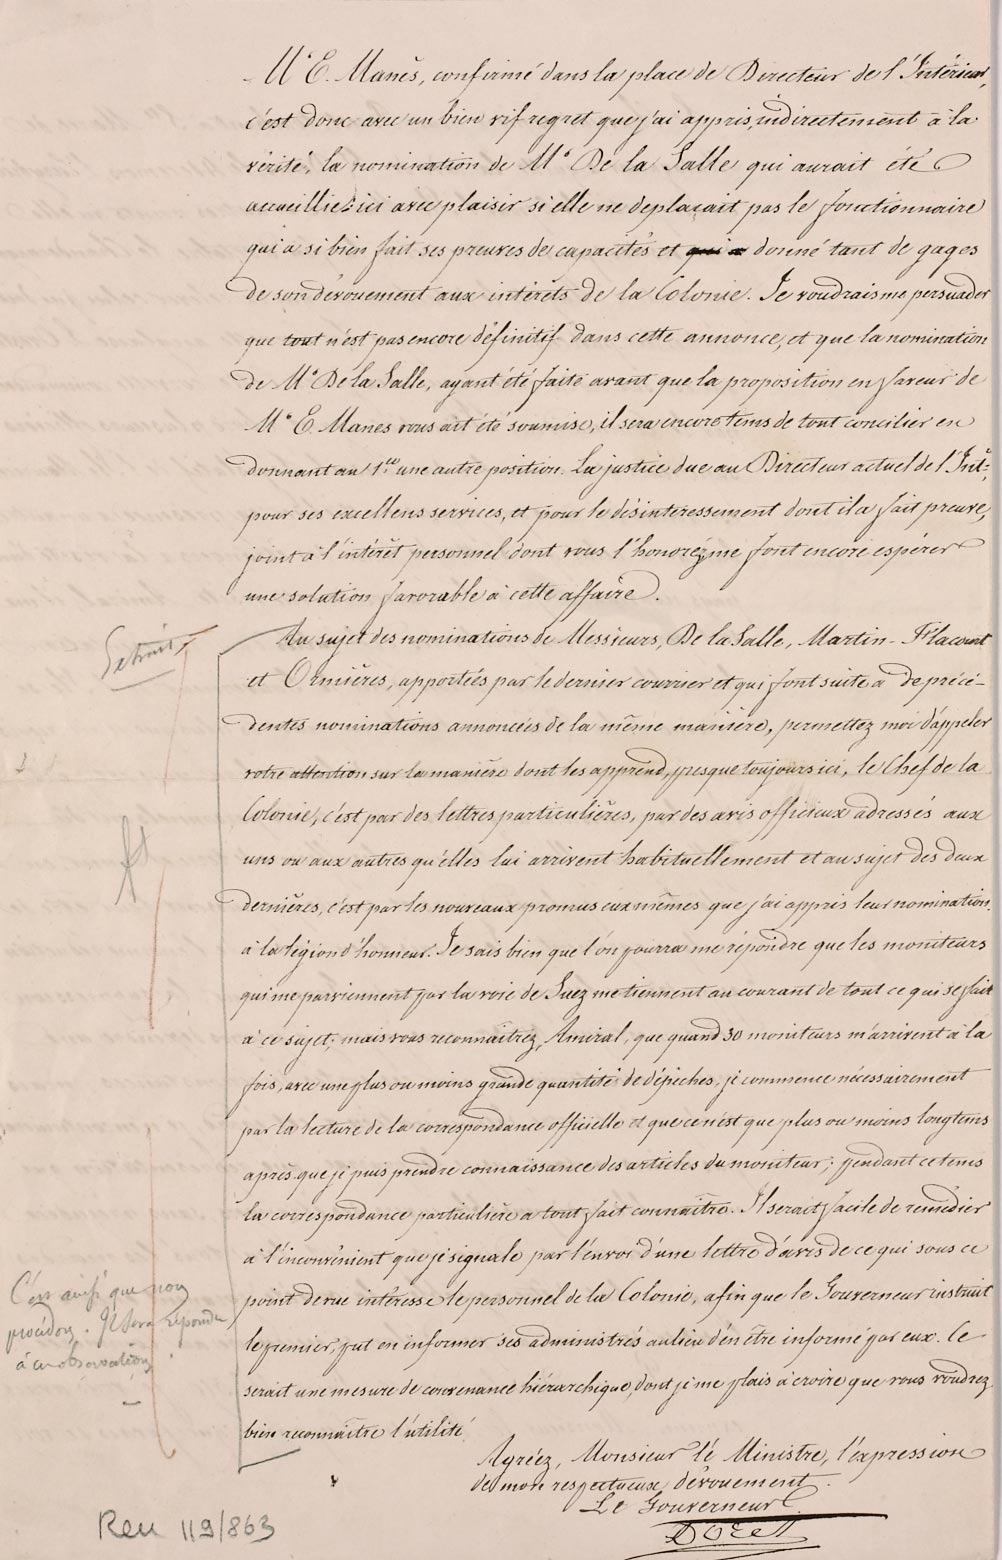 Mr E. Manès, confirmé dans la place de Directeur de l'Intérieur,
c'est donc avec un bien vif regret que j'ai appris, indirectement à la
vérité, la nomination de Mr De la Salle qui aurait été
accueillie ici avec plaisir si elle ne deplaçait pas le fonctionnaire
qui a si bien fait ses preuves de capacités et qui a donné tant de gages
de son dévouement aux intérêts de la Colonie. Je voudrais me persuader
que tout n'est pas encore définitif dans cette annonce, et que la nomination
de Mr De la Salle, ayant été faite avant que la proposition en faveur de
Mr E. Manès vous ait été soumise, il sera encore tems de tout concilier en
donnant au 1er une autre position. La justice due au Directeur actuel de l'Intr,
pour ses excellens services, et pour le désintéressement dont il a fait preuve,
joint à l'intérêt personnel dont vous l'honorez, me font encore espérer
une solution favorable à cette affaire.
Extrait
Au sujet des nominations de Messieurs, De la Salle, Martin-Flacourt
et Ormières, apportées par le dernier courrier et qui font suite à de précé-
dentes nominations annoncées de la même manière, permettez moi d'appeler
votre attention sur la manière dont les apprend, presque toujours ici, le Chef de la
Colonie, c'est par des lettres particulières, par des avis officieux adressés aux
uns ou aux autres qu'elles lui arrivent habituellement et au sujet des deux
dernières, c'est par les nouveaux promus eux mêmes que j'ai appris leur nomination
à la légion d'honneur. Je sais bien que l'on pourra me répondre que les moniteurs
qui me parviennent par la voie de Suez me tiennent au courant de tout ce qui se fait
à ce sujet; mais vous reconnaîtrez, Amiral, que quand 30 moniteurs m'arrivent à la
fois, avec une plus ou moins grande quantité de dépêches, je commence nécessairement
par la lecture de la correspondance officielle et que ce n'est que plus ou moins longtems
après que je puis prendre connaissance des articles du moniteur; pendant ce tems
la correspondance particulière a tout fait connaître. Il serait facile de remédier
à l'inconvénient que je signale par l'envoi d'une lettre d'avis de ce qui sous ce
point de vue intéresse le personnel de la Colonie, afin que le Gouverneur instruit
le premier, put en informer ses administrés au lieu d'en être informé par eux. Ce
serait une mesure de convenance hiérarchique, dont je me plais à croire que vous voudrez
bien reconnaître l'utilité.
C'est ainsi que nous
procédons. Il sera répondu
à cette observation
Agréez, Monsieur le Ministre, l'expression
de mon respectueux dévouement.
Le Gouverneur
Reu 119/863